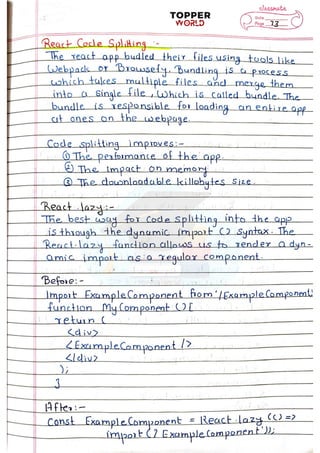 classmate
TOPPER
WORLD
Date
Page 73
React Code Splitting :-
The react app budled their files using tools like
Webpack or Browsefy. Bundling is a process
which takes multiple files and merge them
into a single file, which is called bundle. The
bundle is responsible for loading an entire app
at ones on the webpage.
Code splitting improves:-
① The performance of the app.
② The impact on memory
③ The downloadable killobytes size.
React lazy:-
The best way for code splitting into the app
is through the dynamic import () syntax. The
React.lazy function allows us to render a dyn-
amic import as a regular component.
Before:-
Import ExampleComponent from './ExampleComponent'
function MyComponent () {
return (
<div>
<ExampleComponent />
</div>
);
}
After:-
const ExampleComponent = React.lazy (() =>
import ('./ExampleComponent'));